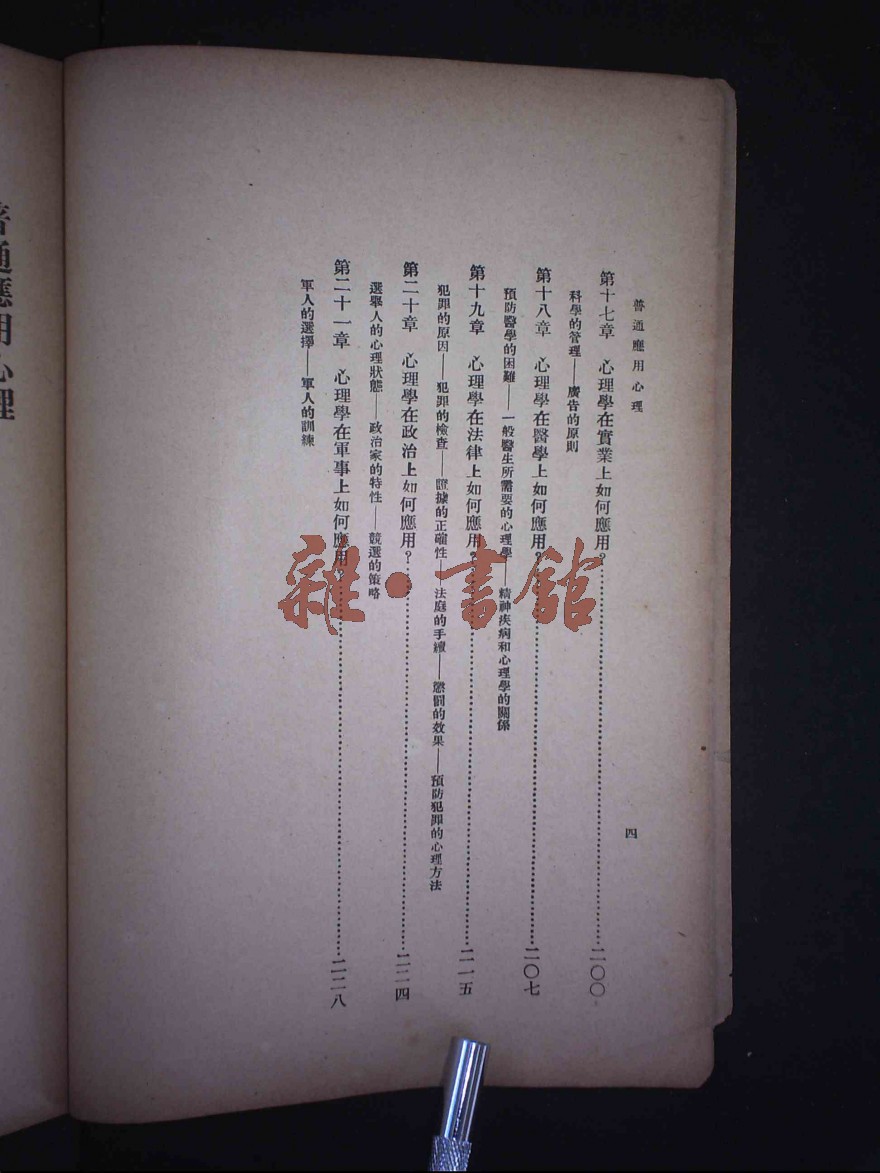 普通應用心理
四
第十七章 心理學在實業上如何應用?……二〇〇
科學的管理——廣告的原則
第十八章 心理學在醫學上如何應用?……二〇七
預防醫學的困難——一般醫生所需要的心理學——精神疾病和心理學的關係
第十九章 心理學在法律上如何應用?……二一五
犯罪的原因——犯罪的檢查——證據的正確性——法庭的手續——懲罰的效果——預防犯罪的心理方法
第二十章 心理學在政治上如何應用?……二二四
選舉人的心理狀態——政治家的特性——競選的策略
第二十一章 心理學在軍事上如何應用?……二二八
軍人的選擇——軍人的訓練
普通應用心理
雜·書館